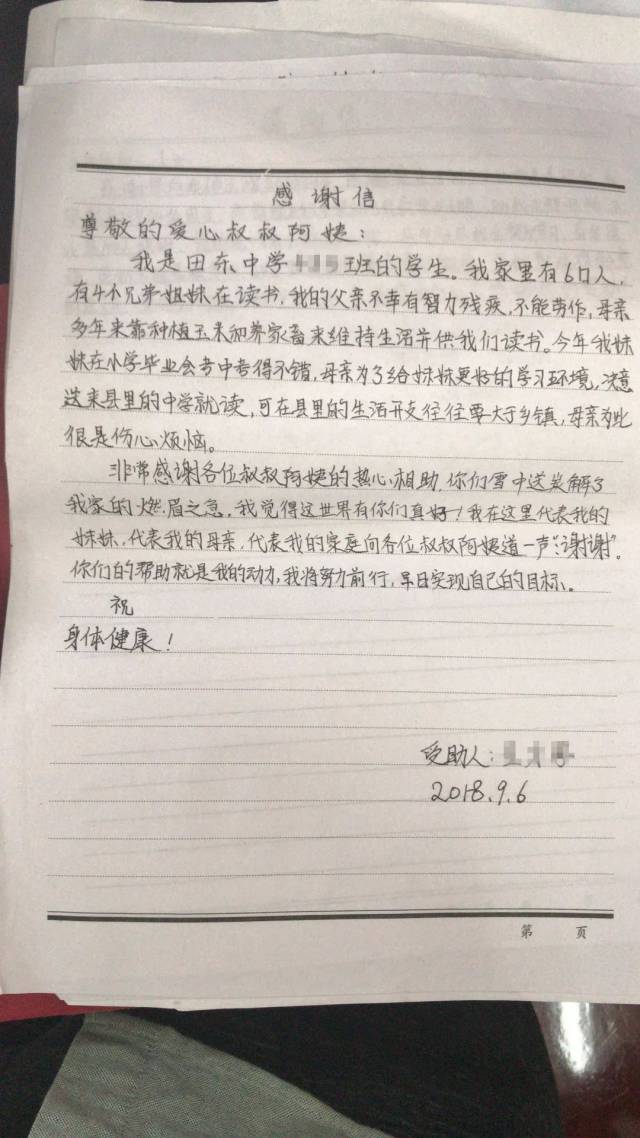 感谢信
尊敬的爱心叔叔阿姨：
我是田东中学班的学生。我家里有6口人，
有4个兄弟姐妹在读书，我的父亲不幸有智力残疾，不能劳作，母亲
多年来靠种植玉米和养家畜来维持生活并供我们读书。今年我妹
妹在小学毕业会考中考得不错，母亲为了给妹妹更好的学习环境，决意
送来县里的中学就读，可在县里的生活开支径径要大于乡镇，母亲为此
很是伤心烦恼。
非常感谢各位叔叔阿姨的热心相助，你们雪中送炭解了
我家的燃眉之急，我觉得这世界有你们真好！我在这里代表我的
妹妹，代表我的母亲，代表我的家庭向各位叔叔阿姨道一声“谢谢”。
你们的帮助就是我的动力，我将努力前行，早日实现自己的目标。
祝
身体健康！
受助人：
2018.9.6
第 页